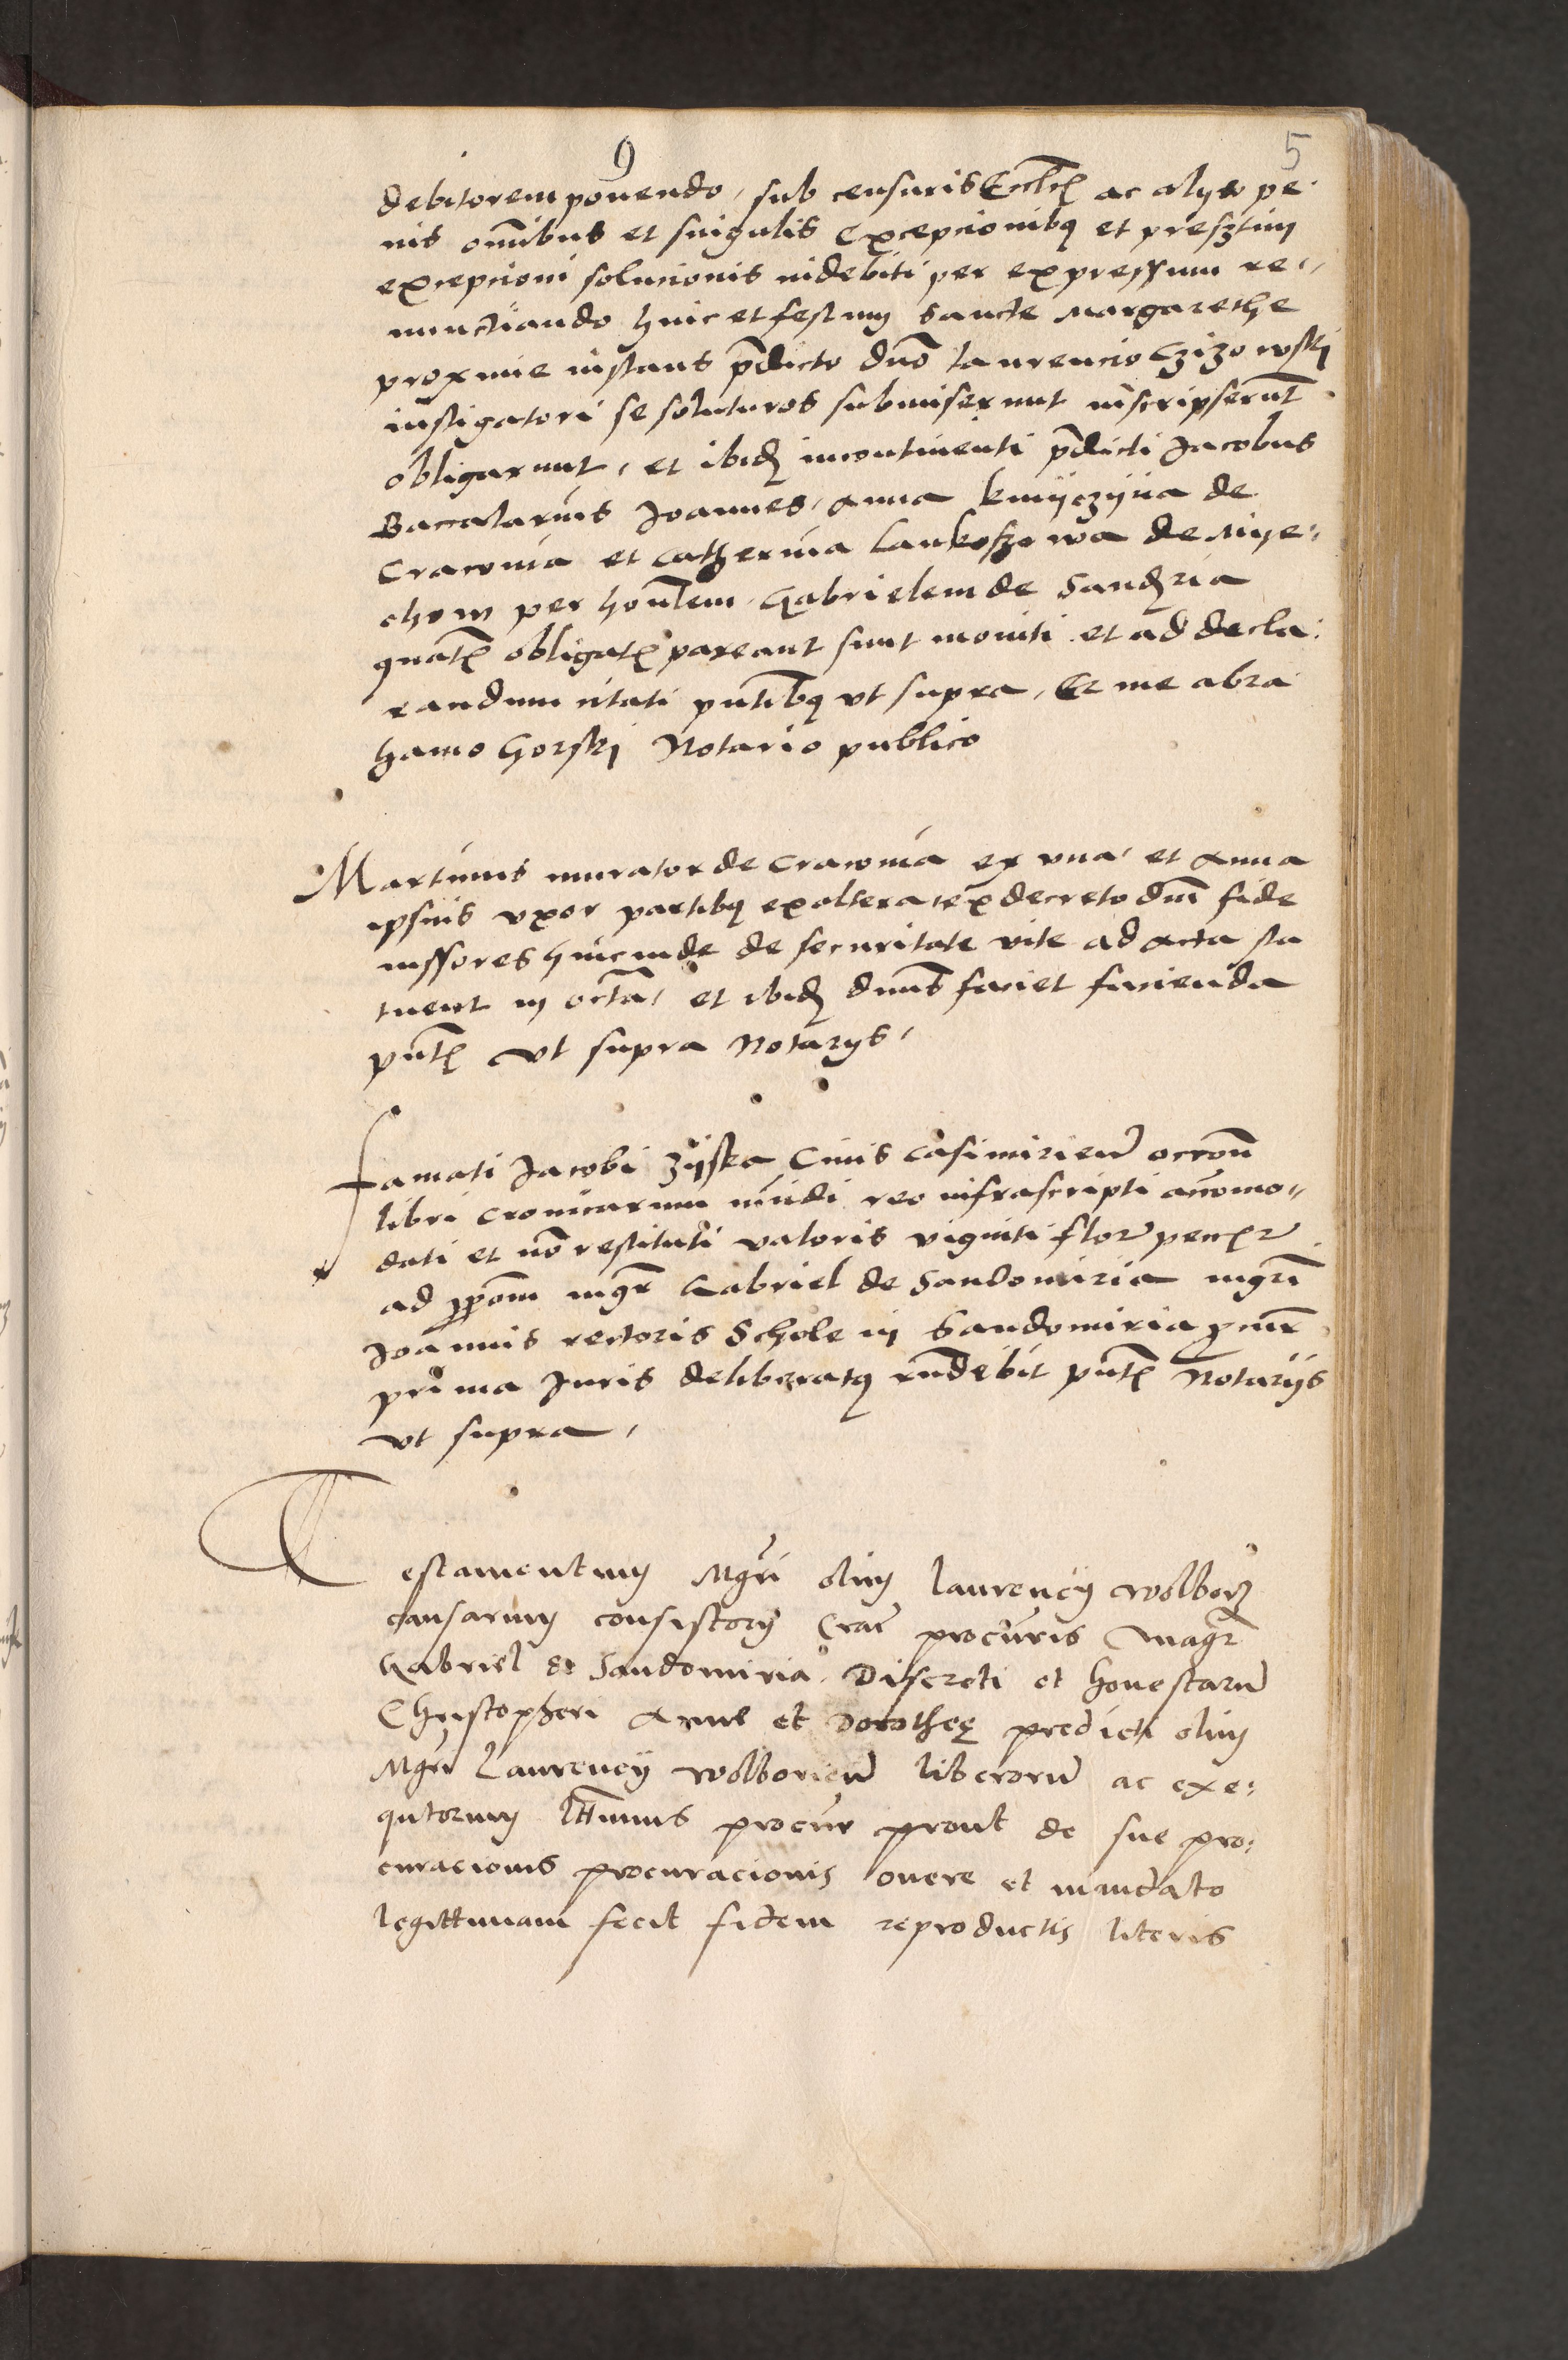 9
5
debitorem ponendo, sub censuris Ecclᷓ ac alijs pe
nis omībus et singulis Excepcionibq et presertim
excepcioni solucionis indebiti per expressum re„
nunctiando hinc et festum Sancte Margarethe
proxime instans p̄dicto dn̄o Laurencio Czizowskj
instigatori se soluturos submiserunt inscripserūt
obligarunt, et ibid incontinenti p̄dicti Jacobus
Baccalarius Joannes, Anna kmijczijna de
Cracouia et Catherina Lankoszowa de Mye:
chow per honᷓlem Gabrielem de Sandria
quatᷓ obligatᷓ pareant sunt moniti et ad decla:
randum citati pn̄tibq vt supra, Et me abra
hamo Gorskj Notario publico
Martinus murator de Cracouia ex vna, et Anna
ipsius vxor partibq ex altera ex decreto dn̄i fide
iussores hincinde de securitate vite ad acta sta
tuent in octā, et ibid dn̄us faciet facienda
pn̄tᷓ vt supra Notarijs,
Famati Jacobi zijska Ciuis Casimirien̄ occōn̄
libri cronicarum mūdi reo infrascripti acōmo„
dati et nō restituti valoris viginti flor pecᷓ
ad ꝓpōm mgr Gabriel de Sandomiria mgri
Joannis rectoris Schole in Sandomiria ꝓcur
prima Juris deliberatq rn̄debit pn̄tᷓ Notarijs
vt supra,
Testamentum Mgri olim Laurencij Wolbor
causarum consistorij Crac procuris Magr
Gabriel de Sandomiria, Discreti et honestarū
Christopheri Anne et Dorotheę predicti olim
Mgri Laurencij Wolborien̄ liberorū ac exe:
qutorum lttimus procur prout de sue pro:
curacionis procuracionis onere et mandato
legittimam fecit fidem reproductis literis